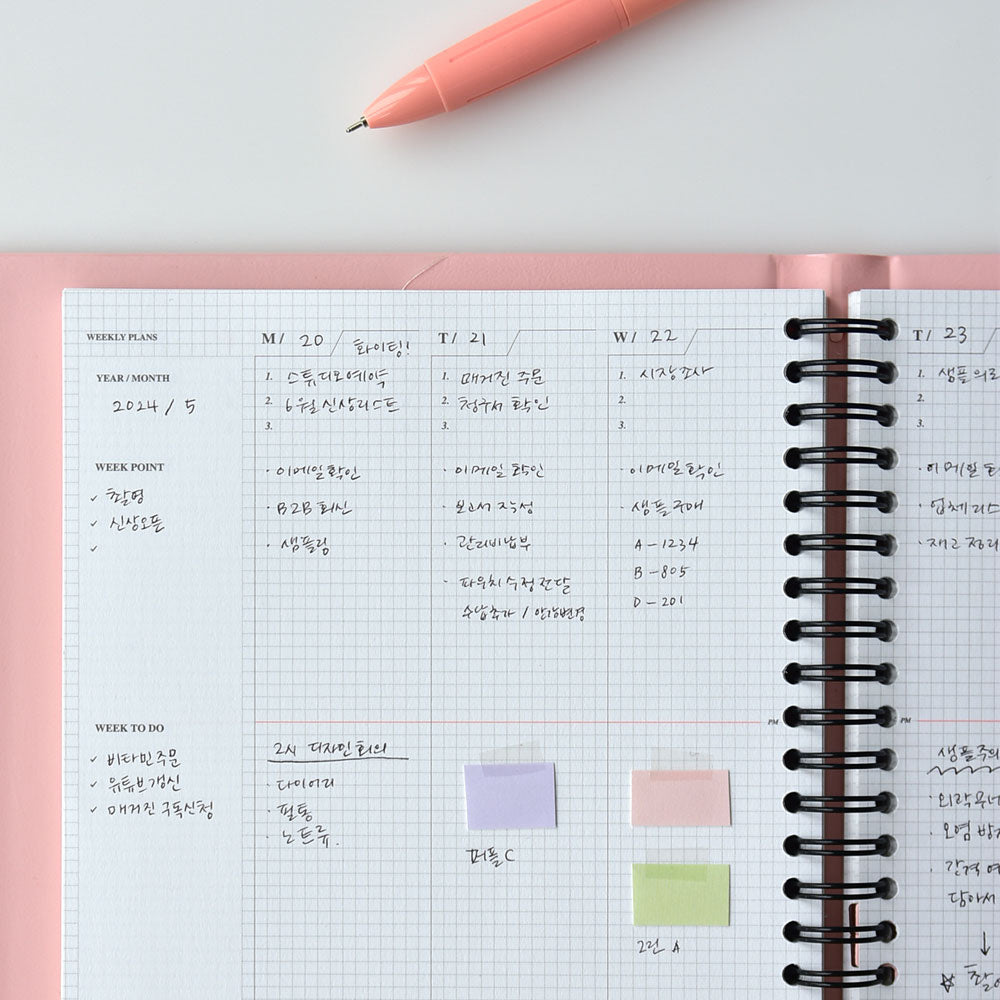 WEEKLY PLANS
YEAR / MONTH
2024 / 5
WEEK POINT
✓ 촬영
✓ 신상오픈
✓
WEEK TO DO
✓ 비타민주문
✓ 유튜브갱신
✓ 매거진 구독신청
M / 20 화이팅!
1. 스튜디오예약
2. 6월 신상리스트
3.
· 이메일확인
· B2B 회신
· 샘플링
2시 디자인회의
· 다이어리
· 필통
· 노트류.
T / 21
1. 매거진 주문
2. 청구서 확인
3.
· 이메일 확인
· 보고서 작성
· 관리비납부
· 파우치 수정 전달
수납추가 / 안감변경
퍼플 C
W / 22
1. 시장조사
2.
3.
· 이메일확인
· 샘플구매
A - 1234
B - 805
D - 201
PM
그린 A
T / 23
1. 샘플 의뢰
2.
3.
· 이메일
· 업체리스
· 재고 정리
PM
샘플주의
· 오염 방지
· 간격
담아서
↓